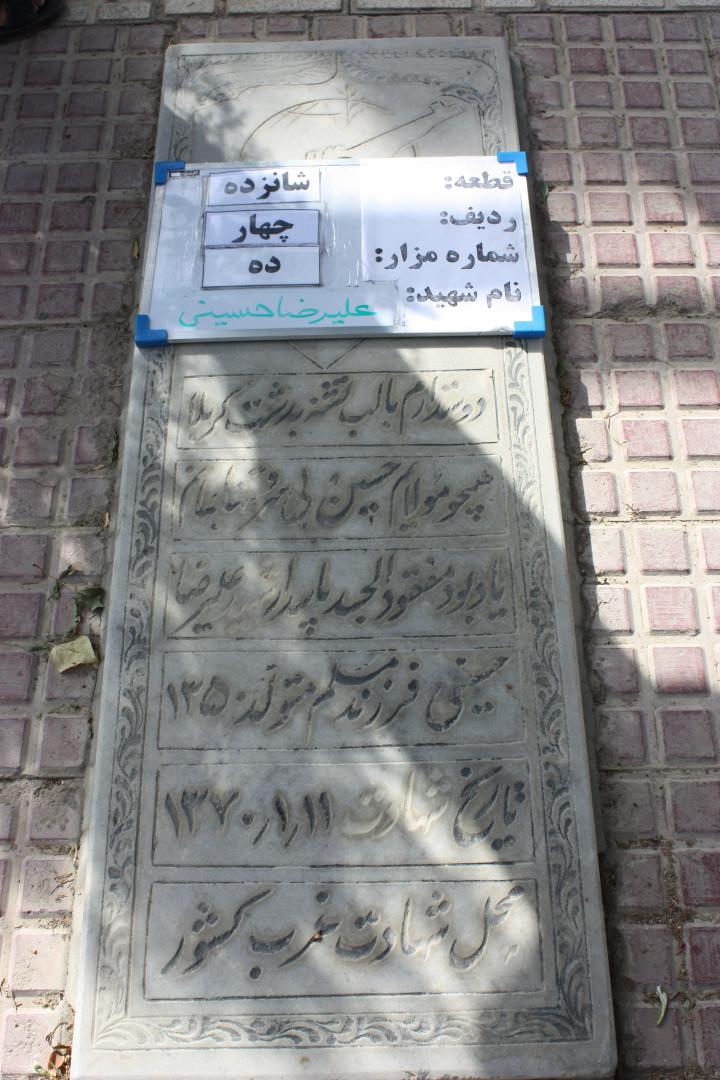 قطعه: شانزده
ردیف: چهار
شماره مزار: ده
نام شهید: علیرضا حسینی
دوستدارم بالب تشنه بدشت کربلا
همچو مولایم حسین بی سر و تنها بمانم
یادبود مفقودالجسد پاسدار سید علیرضا
حسینی فرزند مسلم متولد ۱۳۵۰
تاریخ شهادت ۱۳۷۰٫۱٫۱۱
محل شهادت غرب کشور